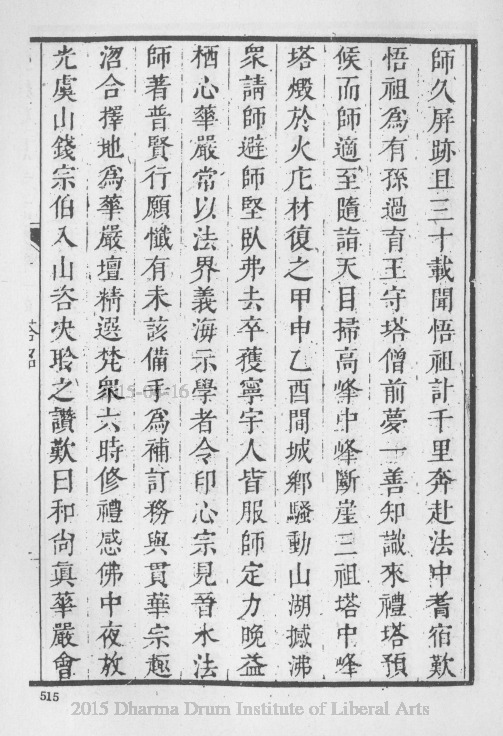 師久屏跡且三十載聞悟祖計千里奔赴法中耆宿歎
悟祖爲有孫過育王守塔僧前夢一善知識來禮塔預
候而師適至隨詣天目掃高峰中峰斷崖三祖塔中峰
塔燬於火庀材復之甲申乙酉間城鄉騷動山湖撼沸
衆請師避師堅臥弗去卒獲寧宇人皆服師定力晚益
栖心華嚴常以法界義海示學者令印心宗見晉水法
師著普賢行願懺有未該備手爲補訂務與貫華宗趣
㳷合擇地爲華嚴壇精選梵衆六時修禮感佛中夜放
光虞山錢宗伯入山咨決聆之讚歎曰和尙眞華嚴會
塔銘
515
2015-04-16
2015 Dharma Drum Institute of Liberal Arts